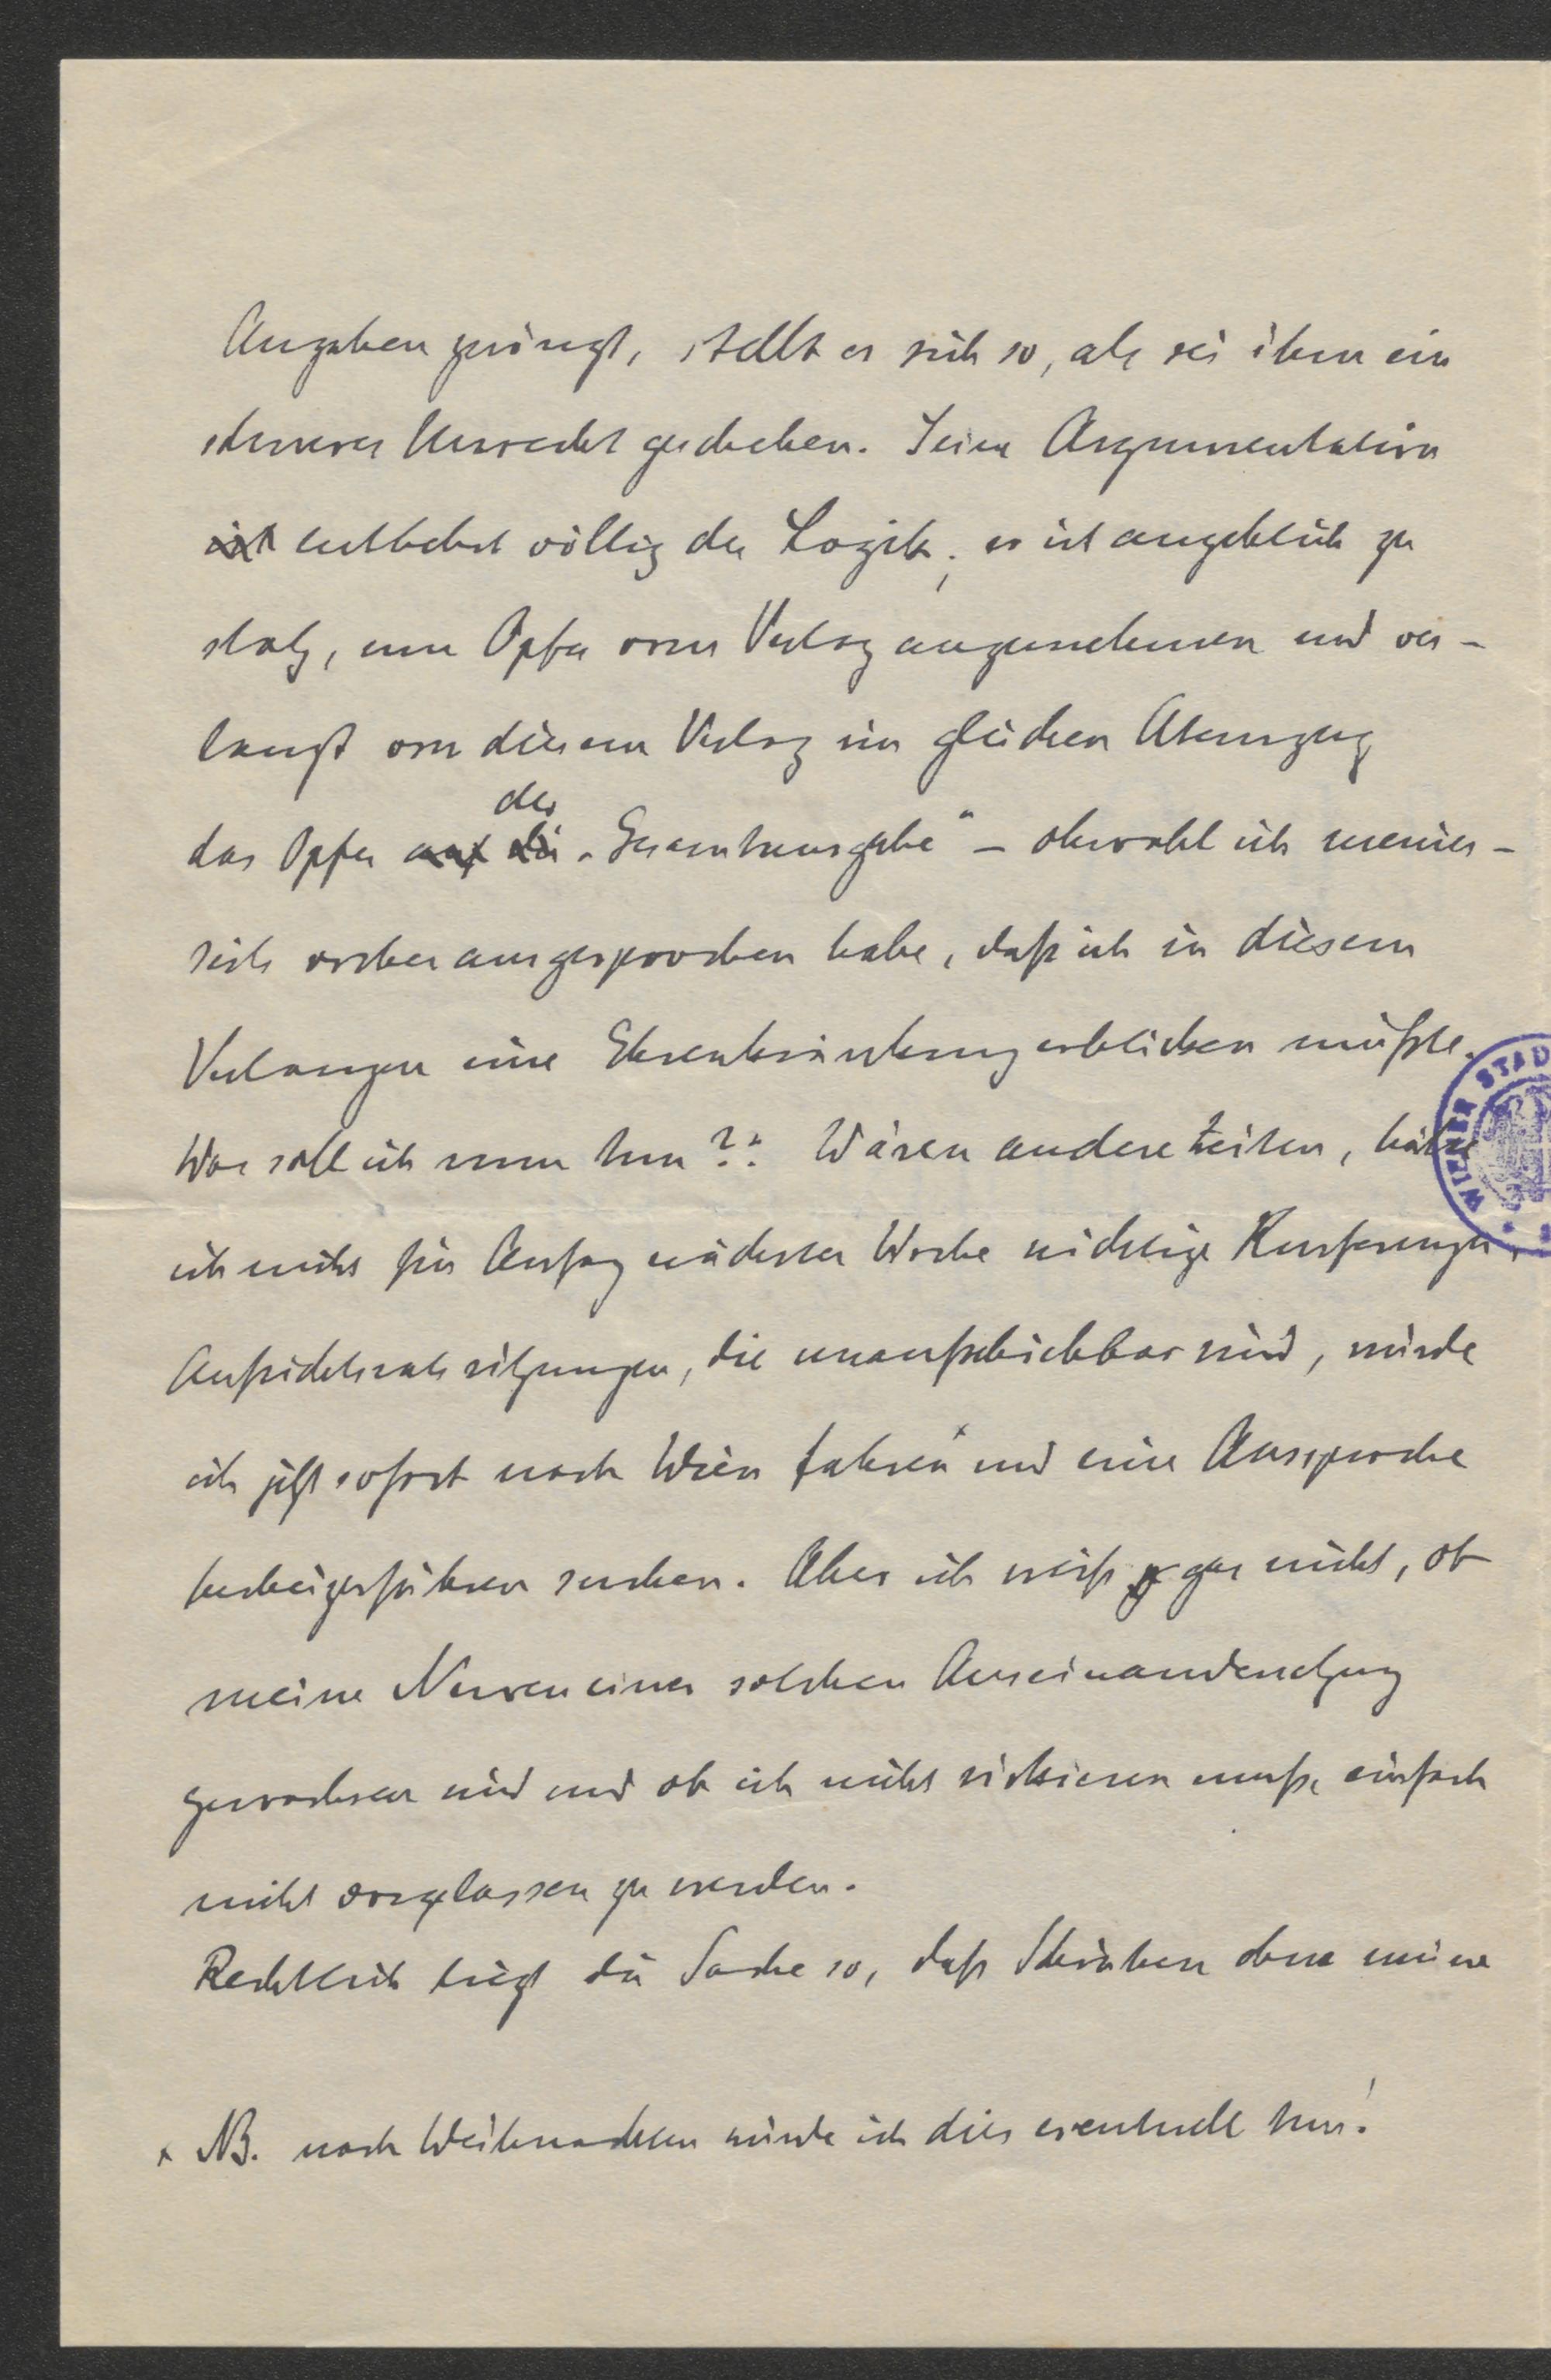 Angaben zwingt, stellt er sich so, als sei ihm ein
schweres Unrecht geschehen. Seine Argumentation
ist entbehrt völlig der Logik; er ist angeblich zu
stolz, um Opfer vom Verlag anzunehmen und ver-
langt von diesem Verlag im gleichen Atemzug
der
das Opfer auf die „Gesamtausgabe" – obwohl ich meiner-
seits vorher ausgesprochen habe, daß ich in diesem
Verlangen eine Ehrenkränkung erblicken müßte.
Was soll ich nun tun?? Wären andere Zeiten, hätte
ich nicht für Anfang nächster Woche wichtige Konferenzen,
Aufsichtsratssitzungen, die unaufschiebbar sind, würde
ich jetzt sofort nach Wien fahren x und eine Aussprache
herbeizuführen suchen. Aber ich weiß gar nicht, ob
meine Nerven einer solchen Auseinandersetzung
gewachsen sind und ob ich nicht riskieren muß, einfach
nicht vorgelassen zu werden.
Rechtlich liegt die Sache so, daß ohne meine
x NB. nach Weihnachten würde ich dies eventuell tun!
WIENER STAD